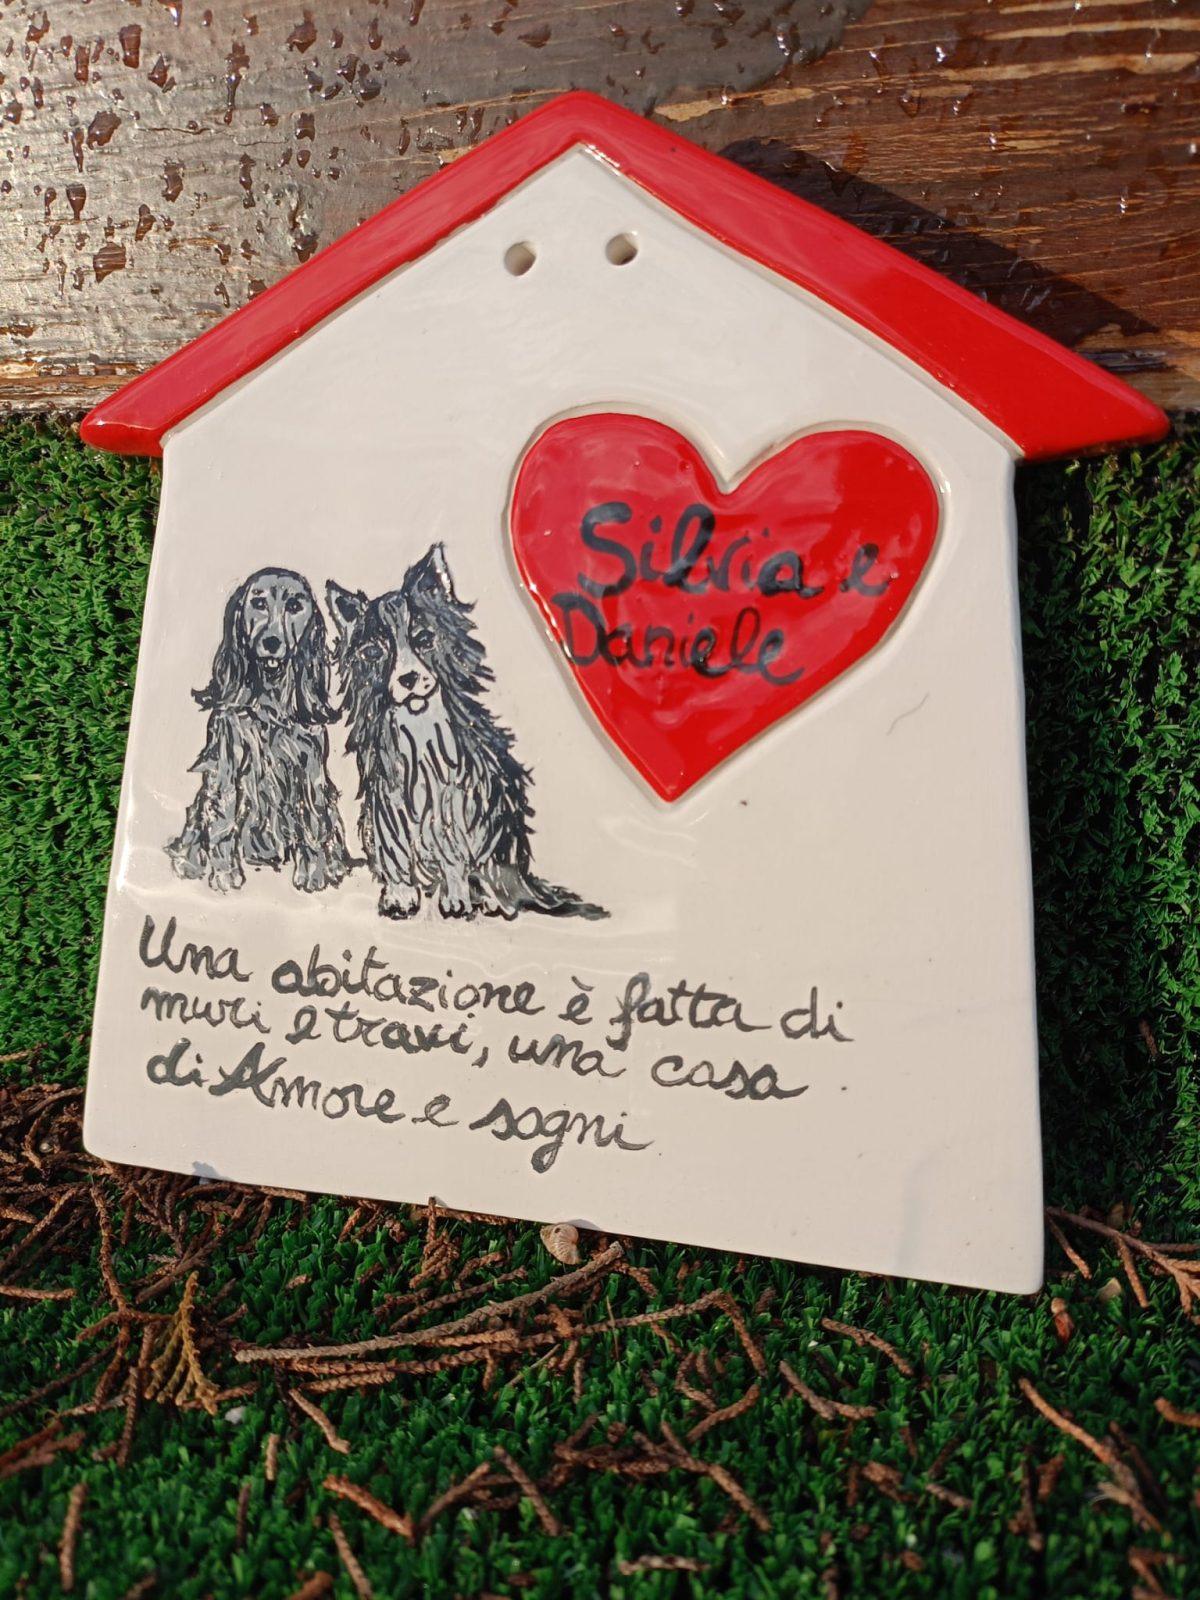 Silvia e
Daniele
Una abitazione è fatta di
muri e travi, una casa
di Amore e sogni